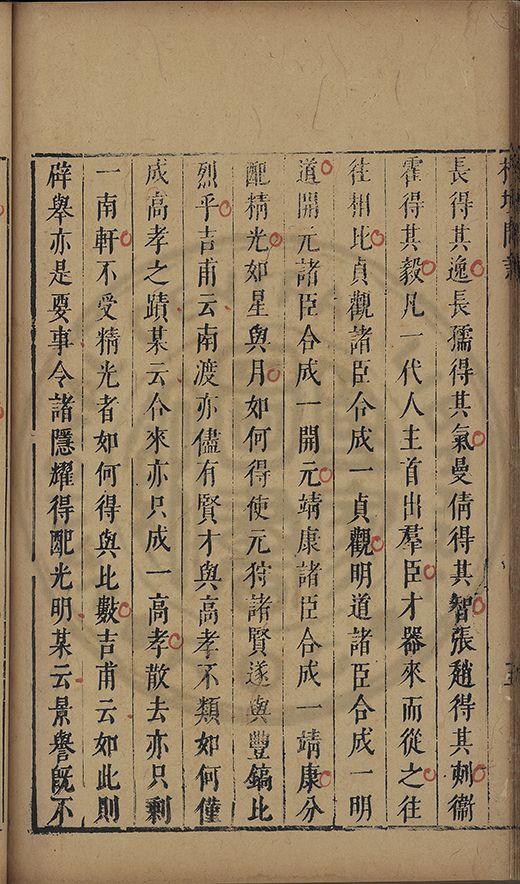 長得其逸長孺得其氣曼倩得其智張趙得其刺衞
霍得其毅凡一代人主首出羣臣才器來而從之往
往相比貞觀諸臣合成一貞觀明道諸臣合成一明
道開元諸臣合成一開元靖康諸臣合成一靖康分
配精光如星與月如何得使元狩諸賢遂與豐鎬比
烈乎吉甫云南渡亦儘有賢才與高孝不類如何僅
成高孝之蹟某云合來亦只成一高孝散去亦只剩
一南軒不受精光者如何得與比數吉甫云如此則
辟舉亦是要事令諸隱耀得配光明某云景譽既不